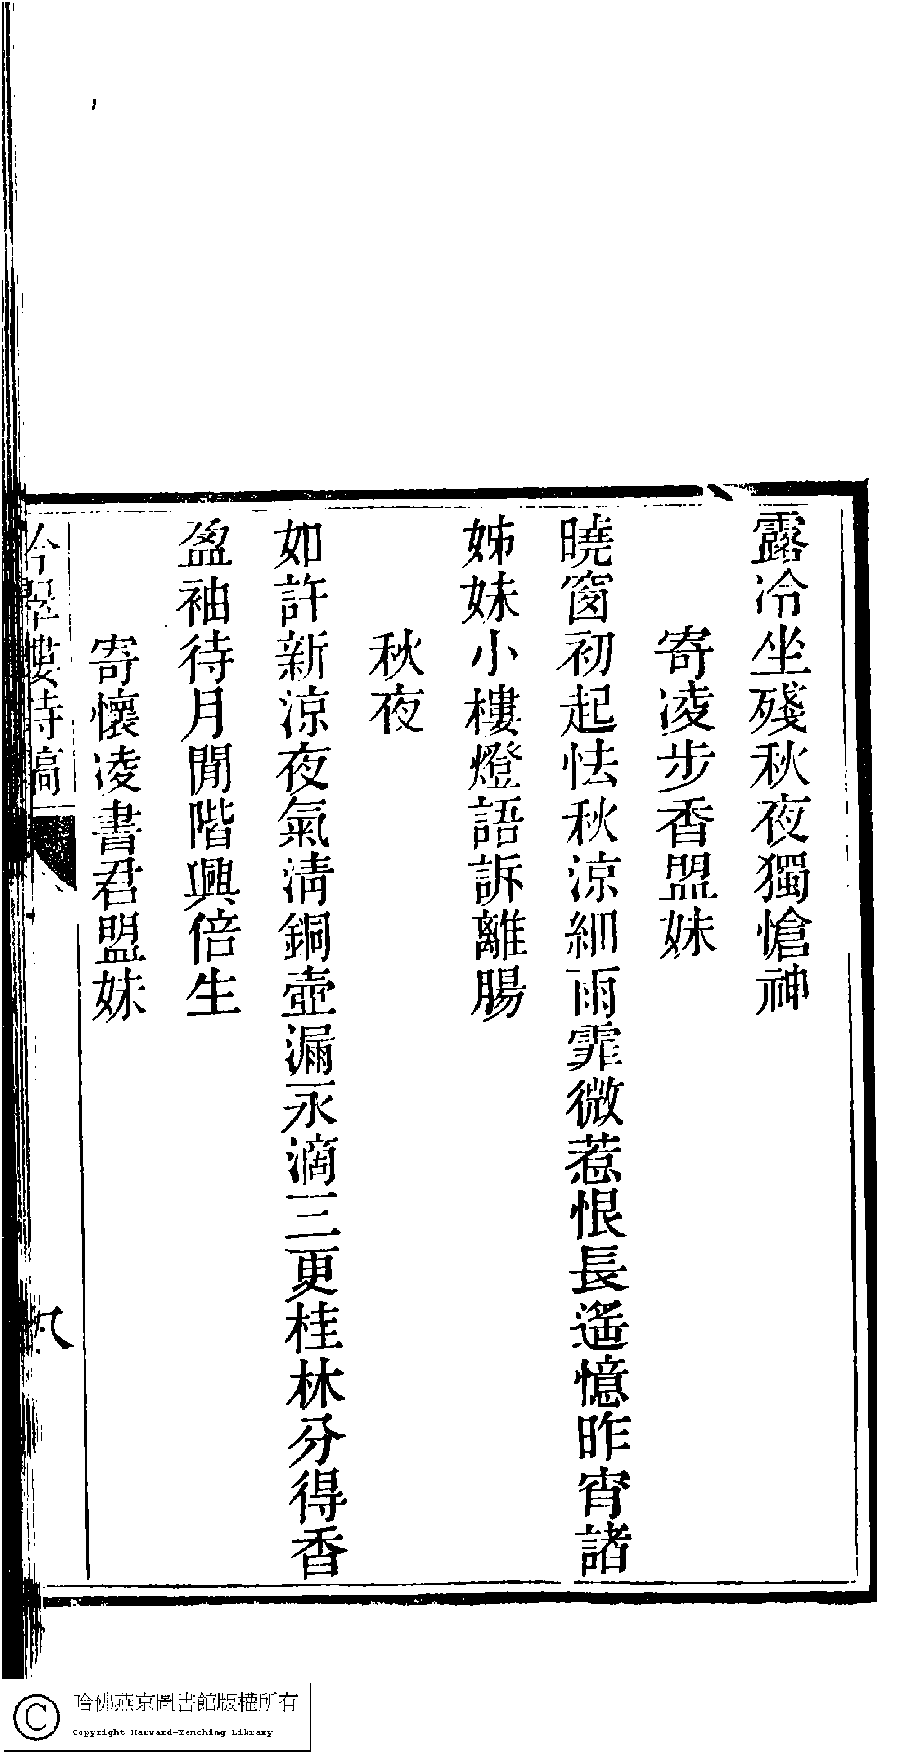 露冷坐殘秋夜獨愴神
寄凌步香盟妹
曉窗初起怯秋涼細雨霏微惹恨長遙憶昨宵諸
姊妹小樓燈語訴離腸
秋夜
如許新涼夜氣清銅壺漏永滴三更桂林分得香
盈袖待月閒階興倍生
寄懷凌書君盟妹
翠樓詩稿
八
哈佛燕京圖書館版權所有
Copyright Harvard-Yenching Library